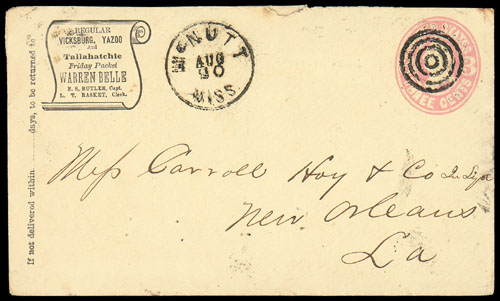 REGULAR
VICKSBURG, YAZOO
And
Tallahatchie
Friday Packet
WARREN BELLE
E. S. BUTLER, Capt.
L. T. BASKET, Clerk.
If not delivered within ........ days, to be returned to
McNUTT
AUG
20
MISS
Mess Carroll Hoy & Co
New Orleans
La